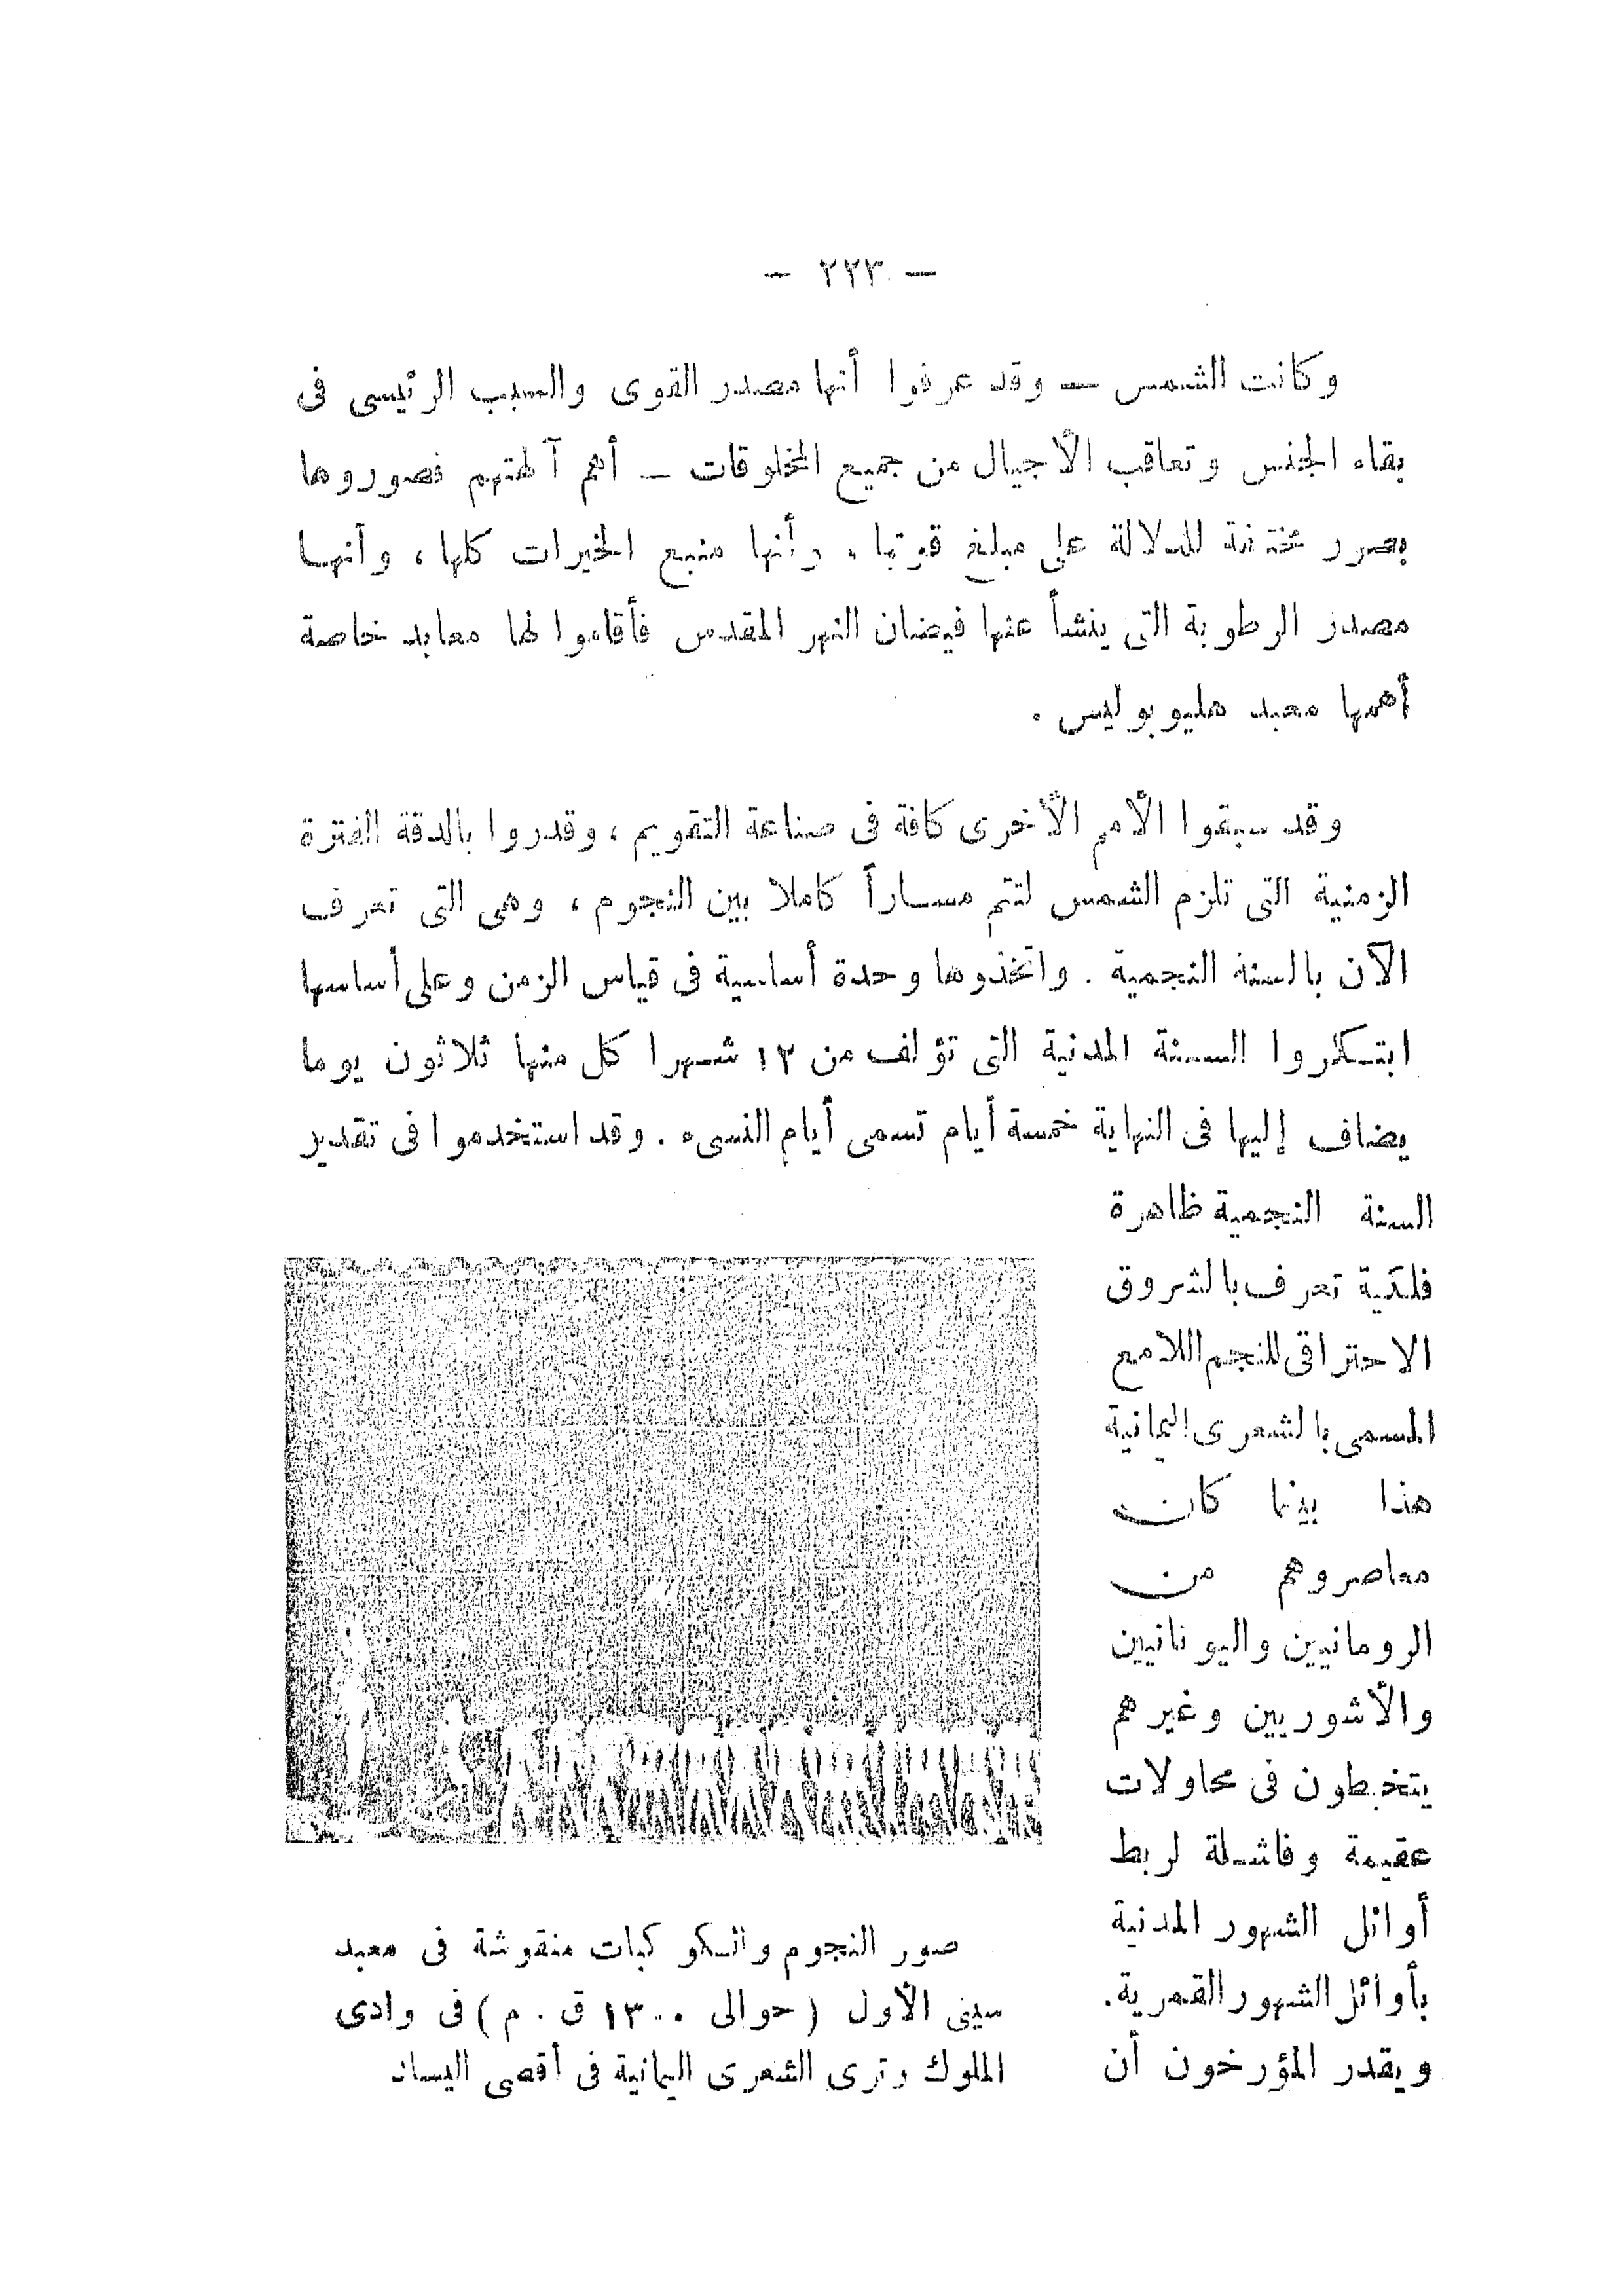 — ٢٢٣ —
وكانت الشمس — وقد عرفوا أنها مصدر القوى والسبب الرئيسى فى
بقاء الجنس وتعاقب الأجيال من جميع المخلوقات — أهم آلهتهم فصوروها
بصور مختلفة للدلالة على مبلغ قوتها ، وأنها منبع الخيرات كلها ، وأنها
مصدر الرطوبة التى ينشأ عنها فيضان النهر المقدس فأقاموا لها معابد خاصة
أهمها معبد هليوبوليس .
وقد سبقوا الأمم الأخرى كافة فى صناعة التقويم ، وقدروا بالدقة الفترة
الزمنية التى تلزم الشمس لتتم مساراً كاملا بين النجوم ، وهى التى تعرف
الآن بالسنة النجمية . واتخذوها وحدة أساسية فى قياس الزمن وعلى أساسها
ابتكروا السنة المدنية التى تؤلف من ١٢ شهرا كل منها ثلاثون يوما
يضاف إليها فى النهاية خمسة أيام تسمى أيام النسىء . وقد استخدموا فى تقدير
السنة النجمية ظاهرة
فلكية تعرف بالشروق
الاحتراقى للنجم اللامع
المسمى بالشعرى اليمانية
هذا بينما كان
معاصروهم من
الرومانيين واليونانيين
والأشوريين وغيرهم
يتخبطون فى محاولات
عقيمة وفاشلة لربط
أوائل الشهور المدنية
بأوائل الشهور القمرية.
ويقدر المؤرخون أن
صور النجوم والكوكبات منقوشة فى معبد
سيتى الأول ( حوالى ١٣٠٠ ق . م ) فى وادى
الملوك وترى الشعرى اليمانية فى أقصى اليسار